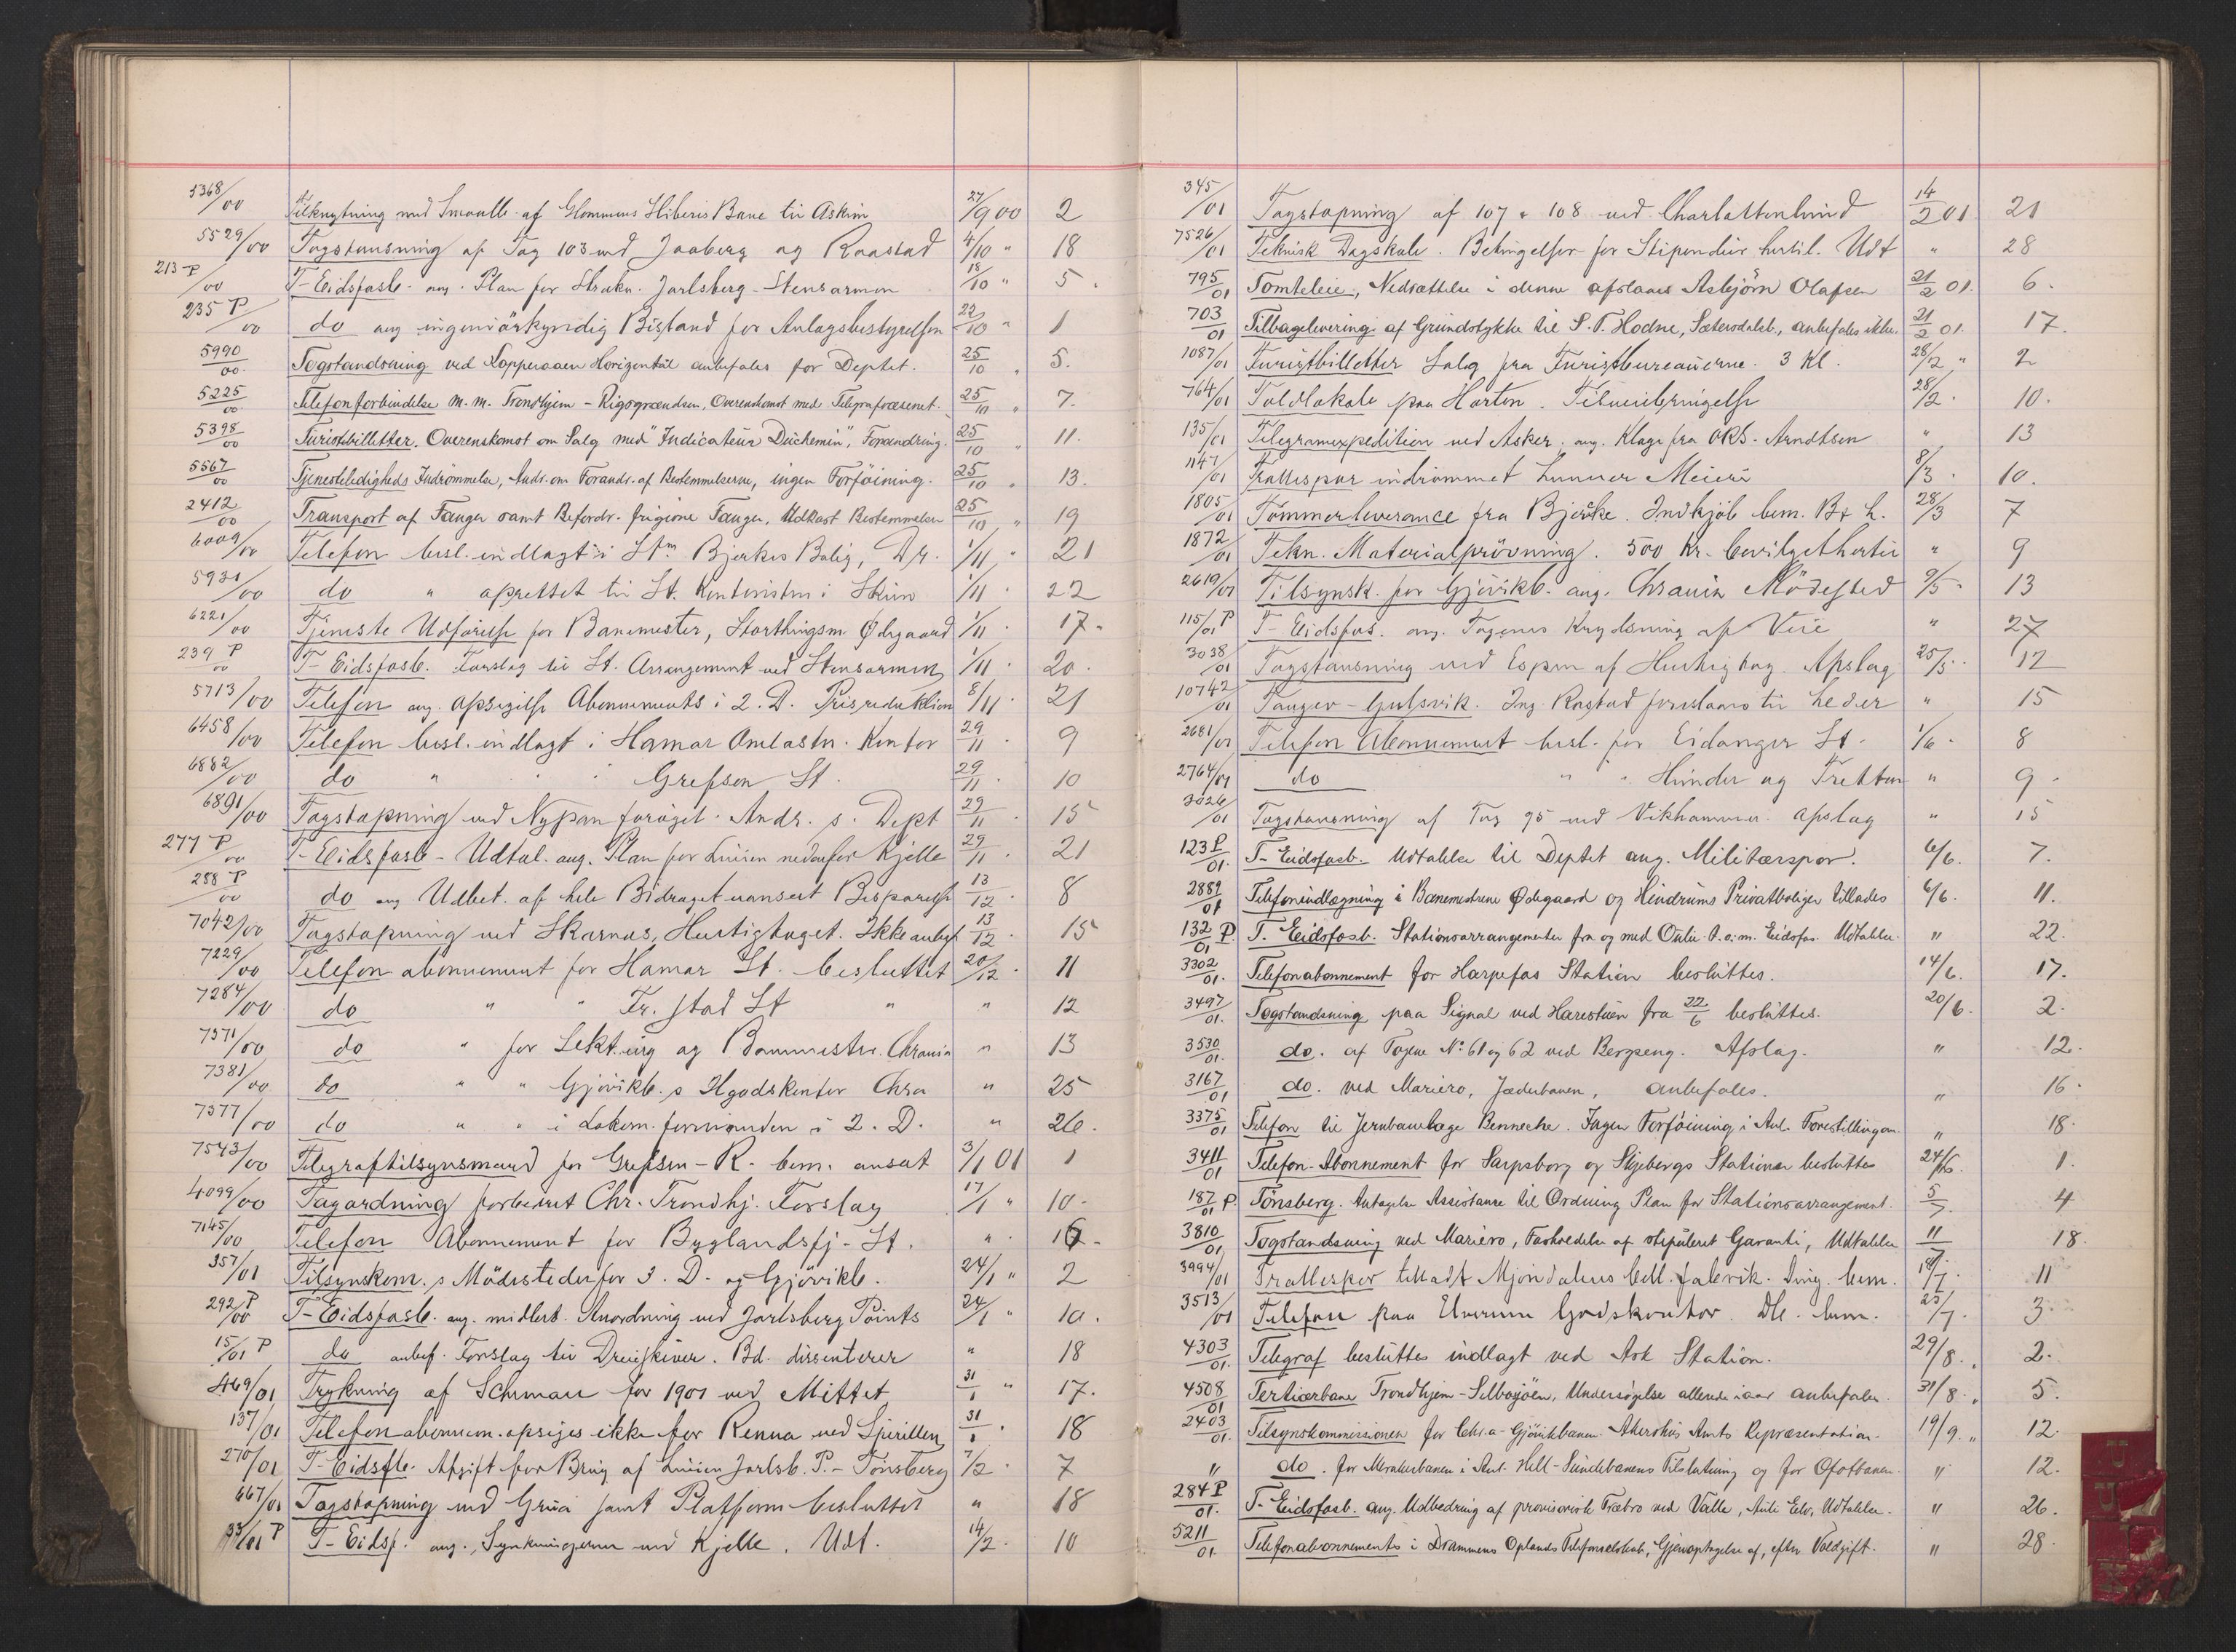 5368/00 Tilknytning med Smaalb. af Glommens Sliberis Bane til Askim 27/9 00 2
5529/00 Togstansning af Tog 103 ved Jaaberg og Raastad 4/10 " 18
213 P/00 T-Eidsfosb. ang. Plan for Strækn. Jarlsberg - Stensarmen 18/10 " 5.
235 P/00 do ang ingeniörkyndig Bistand for Anlægsbestyrelsen 22/10 " 1
5990/00. Togstandsning ved Kopperaaen Horizontal anbefales for Deptet. 25/10 " 5.
5225/00. Telefonforbindelse m.m. Trondhjem - Rigsgrændsen, Overenskomst med Telegrafvæsenet. 25/10 " 7.
5398/00 Turistbilletter. Overenskomst om Salg med "Indicateur Duchemin", Forandring. 25/10 " 11.
5567/00 Tjenesteledigheds Indrömmelse, Andr. om Forandr. af Bestemmelserne, ingen Forföining. 25/10 " 13.
2412/00 Transport af Fanger samt Befordr. frigivne Fanger, Udkast Bestemmelser 25/10 " 19
6009/00 Telefon besl. indlagt i Stm Bjerkes Bolig, Dr. 1/11 " 21
5931/00 do " oprettet til St. Kontoristen i Skien 1/11 " 22
6221/00 Tjeneste Udförelse for Banemester, Storthingsm. Ødegaard 1/11 . 17.
239 P/00 T-Eidsfosb. Forslag til St. Arrangement ved Stensarmen 1/11 . 20.
5713/00 Telefon ang. opsigelse Abonnements i 2. D. Prisreduktion 8/11 . 21
6458/00 Telefon besl. indlagt i Hamar Omlastn. Kontor 29/11 . 9
6882/00 do " " " Grefsen St. 29/11 . 10
6891/00 Togstopning ved Nypan foröget. Andr. s. Dept 29/11 . 15
277 P/00 T-Eidsfosb - Udtal. ang. Plan for Linien nedenfor Kjelle 29/11 21
288 P/00 do ang Udbet. af hele Bidraget uanseet Besparelse 13/12 . 8
7042/00 Togstopning ved Skarnes, Hurtigtoget. Ikke anbef. 13/12 . 15
7229/00 Telefon abonnement for Hamar St. besluttet 20/12 . 11
7284/00 do " " Fr. stad St " " 12
7371/00 do " for Sekt.ing og Banemestr. Chrania " 13
7381/00 do " " Gjövikb. s Ilgodskontor Chra " 25
7377/00 do " " i Lokom. formanden i 2. D. " 26.
7543/00 Telegraftilsynsmand for Grefsen - R. bem. ansat 3/1 01 1
4099/00 Togordning forbedret Chr. Trondhj. Forslag 17/1 " 10.
7145/00 Telefon Abonnement for Byglandsfj. St. " . 16.
357/01 Tilsynskom. s Mödesteder for 3. D. og Gjövikb. 24/1 " 2
292 P/00 T-Eidsfosb. ang. midlert. Anordning ved Jarlsberg Points 24/1 " 10.
15/01 P do anbef. Forslag til Dreieskiver. Bd. dissenterer " 18
469/01 Trykning af Schemaer for 1901 ved Mittet 31/1 " 17.
137/01 Telefonabonnem. opsiges ikke for Renna ved Spirillen 31/1 . 18
270/01 T-Eidsfb. Afgift for Brug af Linien Jarlsb. P. - Tönsberg 7/2 . 7
667/01 Togstopning ved Grua samt Platform besluttet " 18
33/01 P T-Eidsf. ang. Synkningerne ved Kjelle. Udt. 14/2 . 10
345/01 Togstopning af 107 & 108 ved Charlottenlund 14/2 01 21
7526/01 Teknisk Dagskole. Betingelser for Stipendier hertil. Udt " 28
795/01 Tomteleie, Nedsættelse i denne afslaaes Asbjörn Olafsen 21/2 01. 6.
703/01 Tilbagelevering af Grundstykke til S. T. Hodne, Sætersdalsb., anbefales ikke. 21/2 01. 17.
1087/01 Turistbilletter Salg fra Turistbureauerne. 3 Kl. 28/2 " 2
764/01 Toldlokale paa Horten. Tilveiebringelse 28/2 . 10.
135/01 Telegramexpedition ved Asker. ang. Klage fra ORS. Arndtsen " 13
1147/01 Trallespor indrömmet Lunner Meieri 8/3 . 10.
1805/01 Tömmerleverance fra Bjerke. Indkjöb bem. B & L. 28/3 7
1872/01 Tekn. Materialprövning. 500 Kr. bevilget hertil " 9
2619/01 Tilsynsk. for Gjövikb. ang. Chrania Mödested 9/5 . 13
115/01 P T-Eidsfos. ang. Togenes Krydsning af Veie " 27
3038/01 Togstansning ved Espen af Hurtigtog. Afslag 25/5. 12
10742/01 Tanger - Gulsvik. Ing. Rastad foreslaaes til Leder " 15
2681/01 Telefon Abonnement besl. for Eidanger St. 1/6 . 8
2764/01 do " " Hunder og Tretten " 9.
3026/01 Togstansning af Tog 95 ved Vikhammer. afslag " 15
123 P/01. T-Eidsfosb. Udtalelse til Deptet ang. Militærspor. 6/6. 7.
2889/01 Telefonindlægning i Banemestrene Ødegaard og Hindrums Privatboliger tillades 6/6. 11.
132 P./01 T. Eidsfosb. Stationsarrangementer fra og med Oulie t.o.m. Eidsfos. Udtalelse. " 22.
3302/01. Telefonabonnement for Harpefos Station besluttes. 14/6. 17.
3497/01. Togstandsning paa Signal ved Harestuen fra 22/6 besluttes. 20/6. 2.
3530/01. do. af Togene No. 61 og 62 ved Bergseng. Afslag. " 12.
3167/01 do. ved Mariero, Jæderbanen, anbefales. " 16.
3375/01 Telefon til Jernbanelæge Bennecke. Ingen Forföining i Anl. Forestillingen. " 18.
3411/01 Telefon-Abonnement for Sarpsborg og Skjebergs Stationer besluttes 24/6. 1.
187/01 P. Tönsberg. Antagelse Assistance til Ordning Plan for Stationsarrangement. 5/7. 4
3810/01 Togstandsning ved Mariero, Forholdelse af stipuleret Garanti, Udtalelse 11/7 18.
3994/01 Trallespor tilladt Mjöndalens Cell. fabrik. Ding. bem. 18/7. 11
3513/01 Telefon paa Elverum Godskontor. Dte. bem. 25/7. 3.
4303/01. Telegraf besluttes indlagt ved Ask Station. 29/8. " 2.
4508/01 Tertiærbane Trondhjem - Selbosjöen, Undersögelse allerede iaar anbefales. 31/8. " 5.
2403/01. Tilsynskommissionen for Chr.a - Gjövikbanen. Akershus Amts Repræsentation. 19/9. " 12.
" do. for Merakerbanen i Anl. Hell - Sundebanens Tilslutning og for Ofotbanen. " 12.
284 P/01. T-Eidsfosb. ang. Udbedring af provisorisk Træbro ved Valle, Auli Elv, Udtalelse. " 26.
5211/01. Telefonabonnements i Drammens Oplands Telefonselskab, Gjenoptagelse af, efter Voldgift. " 28.